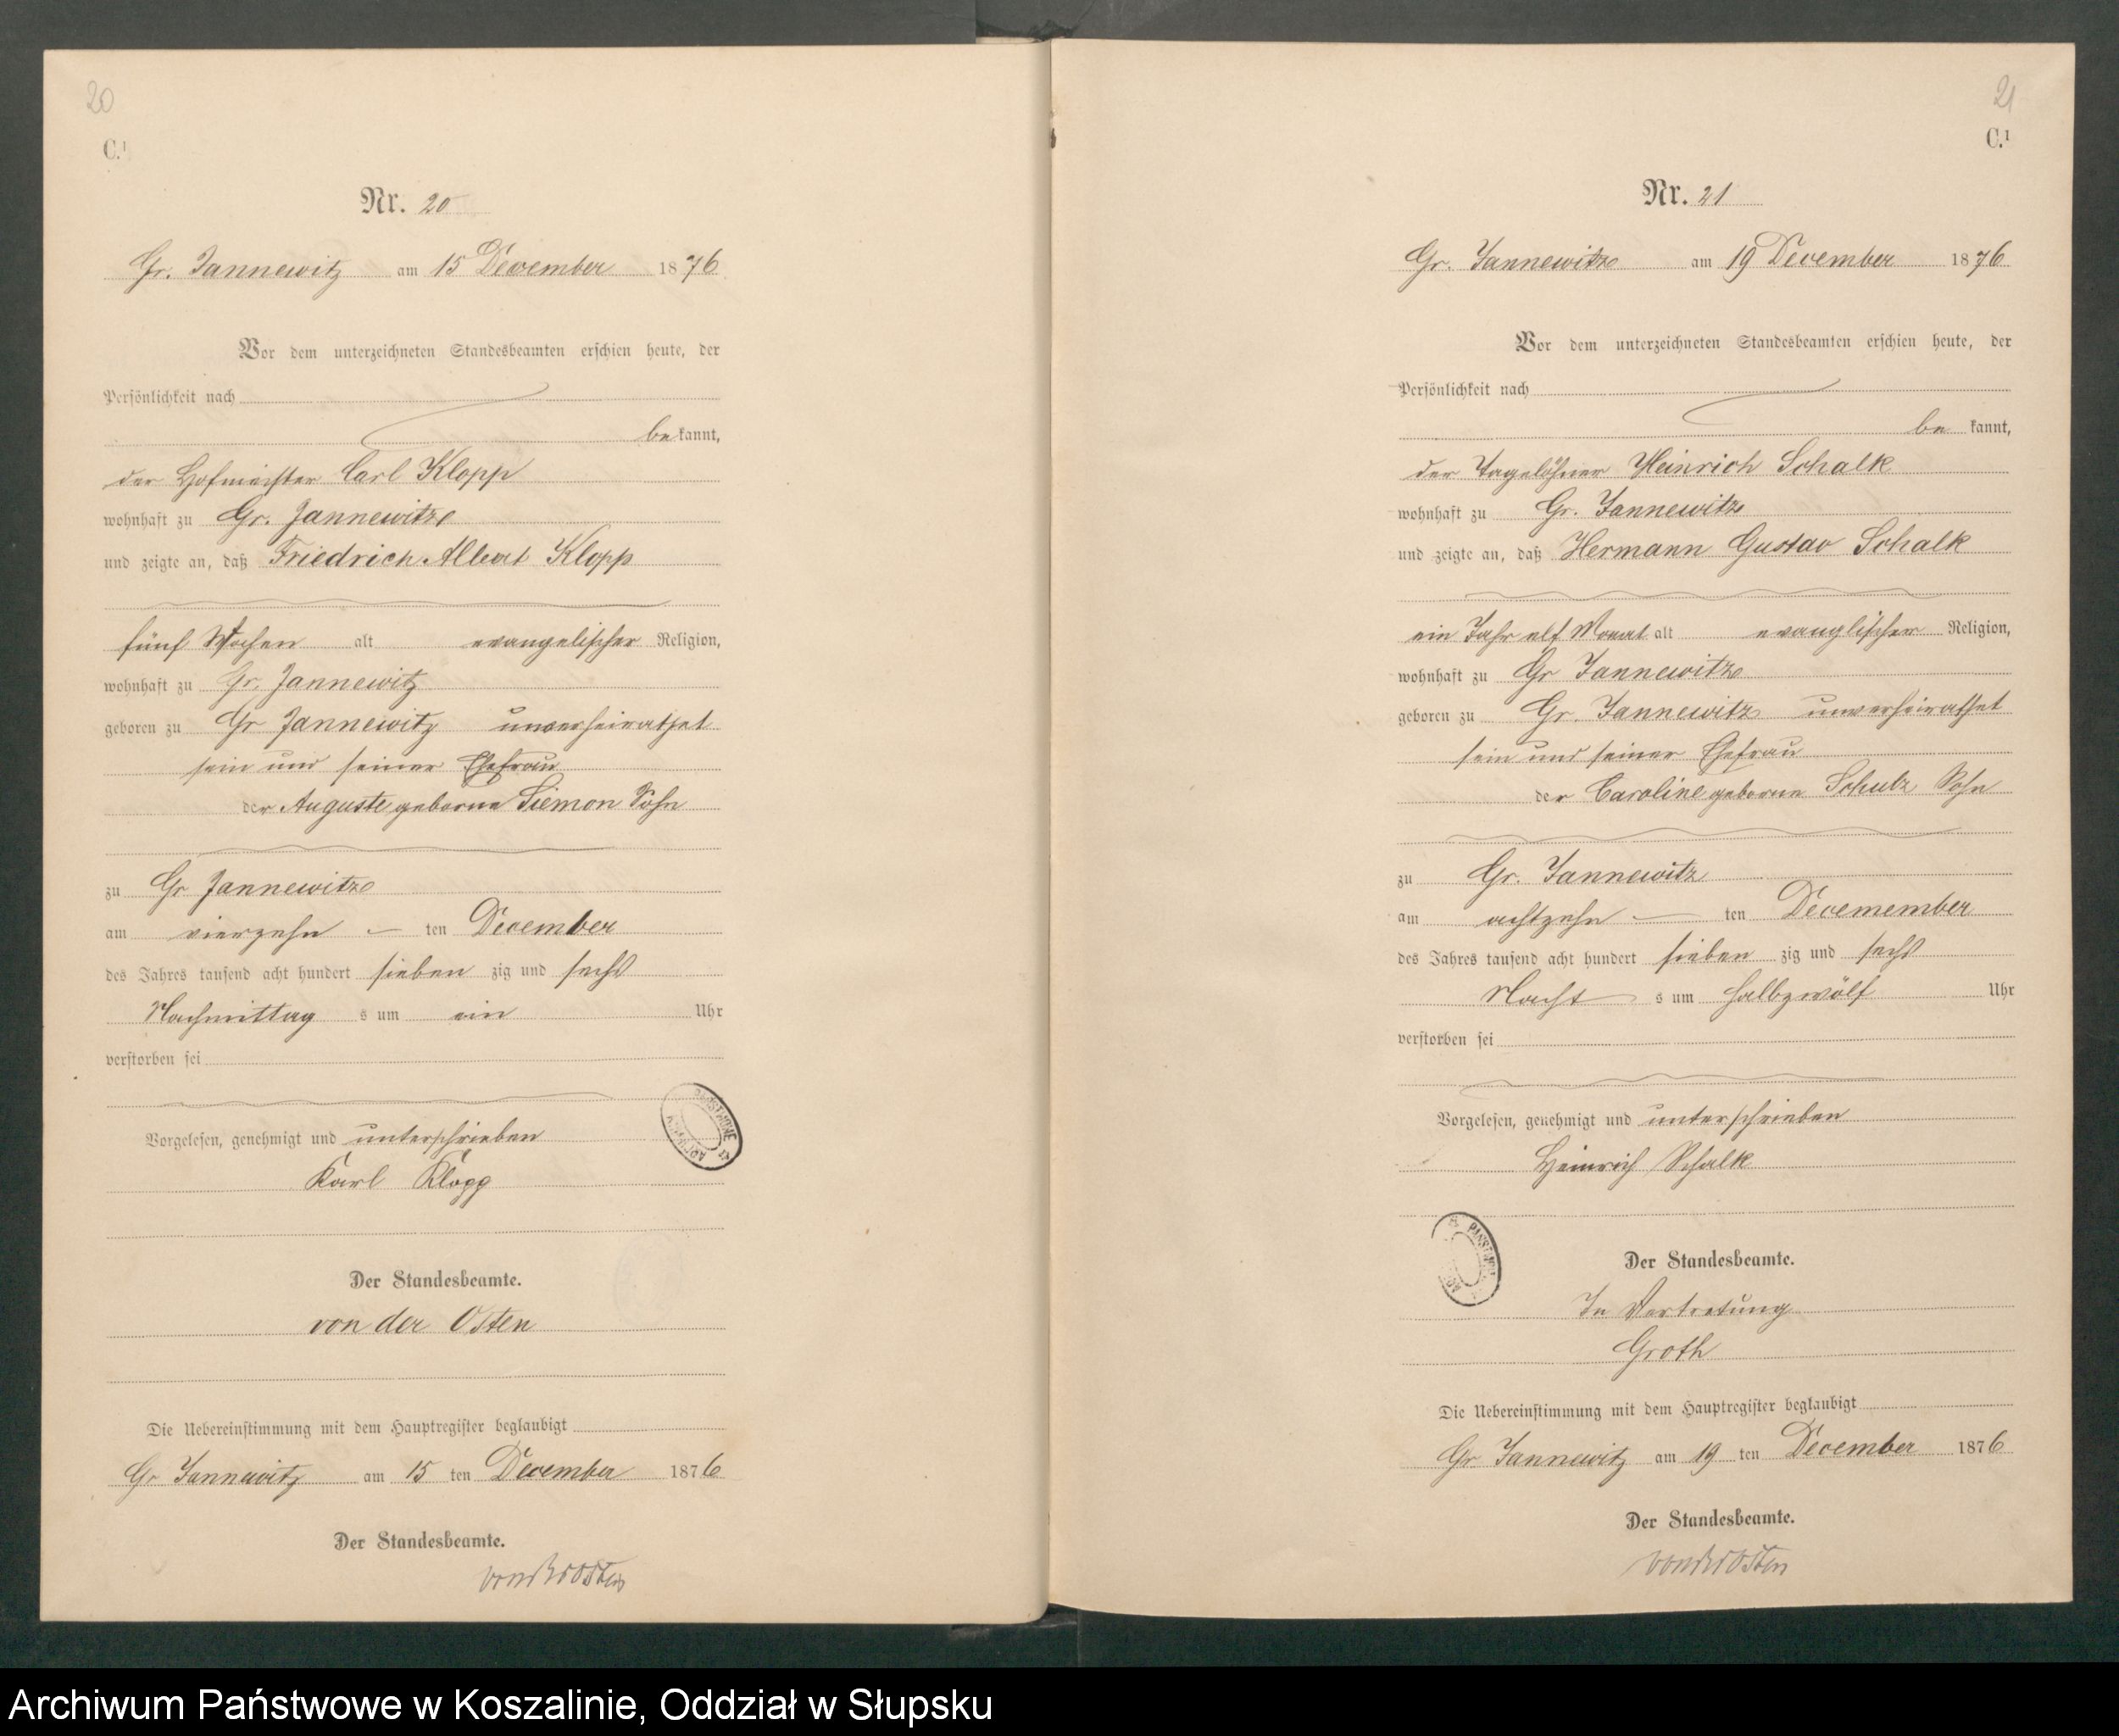 20
C.¹
Nr. 20
Gr. Jannewitz am 15 December 1876
Vor dem unterzeichneten Standesbeamten erschien heute, der
Persönlichkeit nach
bekannt,
der Hofmeister Carl Klopp
wohnhaft zu Gr. Jannewitz
und zeigte an, daß Friedrich Albert Klopp
fünf Wochen alt evangelischer Religion,
wohnhaft zu Gr. Jannewitz
geboren zu Gr Jannewitz unverheirathet
sein und seiner Ehefrau
der Auguste geborne Siemon Sohn
zu Gr Jannewitz
am vierzehn ten December
des Jahres tausend acht hundert sieben zig und sechs
Nachmittag s um ein Uhr
verstorben sei
Vorgelesen, genehmigt und unterschrieben
Karl Klopp
Der Standesbeamte.
von der Osten
Die Uebereinstimmung mit dem Hauptregister beglaubigt
Gr Jannewitz am 15 ten December 1876
Der Standesbeamte.
von der Osten
21
C.¹
Nr. 21
Gr. Jannewitz am 19 December 1876
Vor dem unterzeichneten Standesbeamten erschien heute, der
Persönlichkeit nach
be kannt,
der Tagelöhner Heinrich Schalk
wohnhaft zu Gr. Jannewitz
und zeigte an, daß Hermann Gustav Schalk
ein Jahr elf Monat alt evanglischer Religion,
wohnhaft zu Gr Jannewitz
geboren zu Gr. Jannewitz unverheirathet
sein und seiner Ehefrau
der Caroline geborne Schulz Sohn
zu Gr. Jannewitz
am achtzehn ten Decemember
des Jahres tausend acht hundert sieben zig und sechs
Nacht s um halbzwölf Uhr
verstorben sei
Vorgelesen, genehmigt und unterschrieben
Heinrich Schalk
Der Standesbeamte.
In Vertretung
Groth
Die Uebereinstimmung mit dem Hauptregister beglaubigt
Gr Jannewitz am 19 ten December 1876
Der Standesbeamte.
von der Osten
Archiwum Państwowe w Koszalinie, Oddział w Słupsku